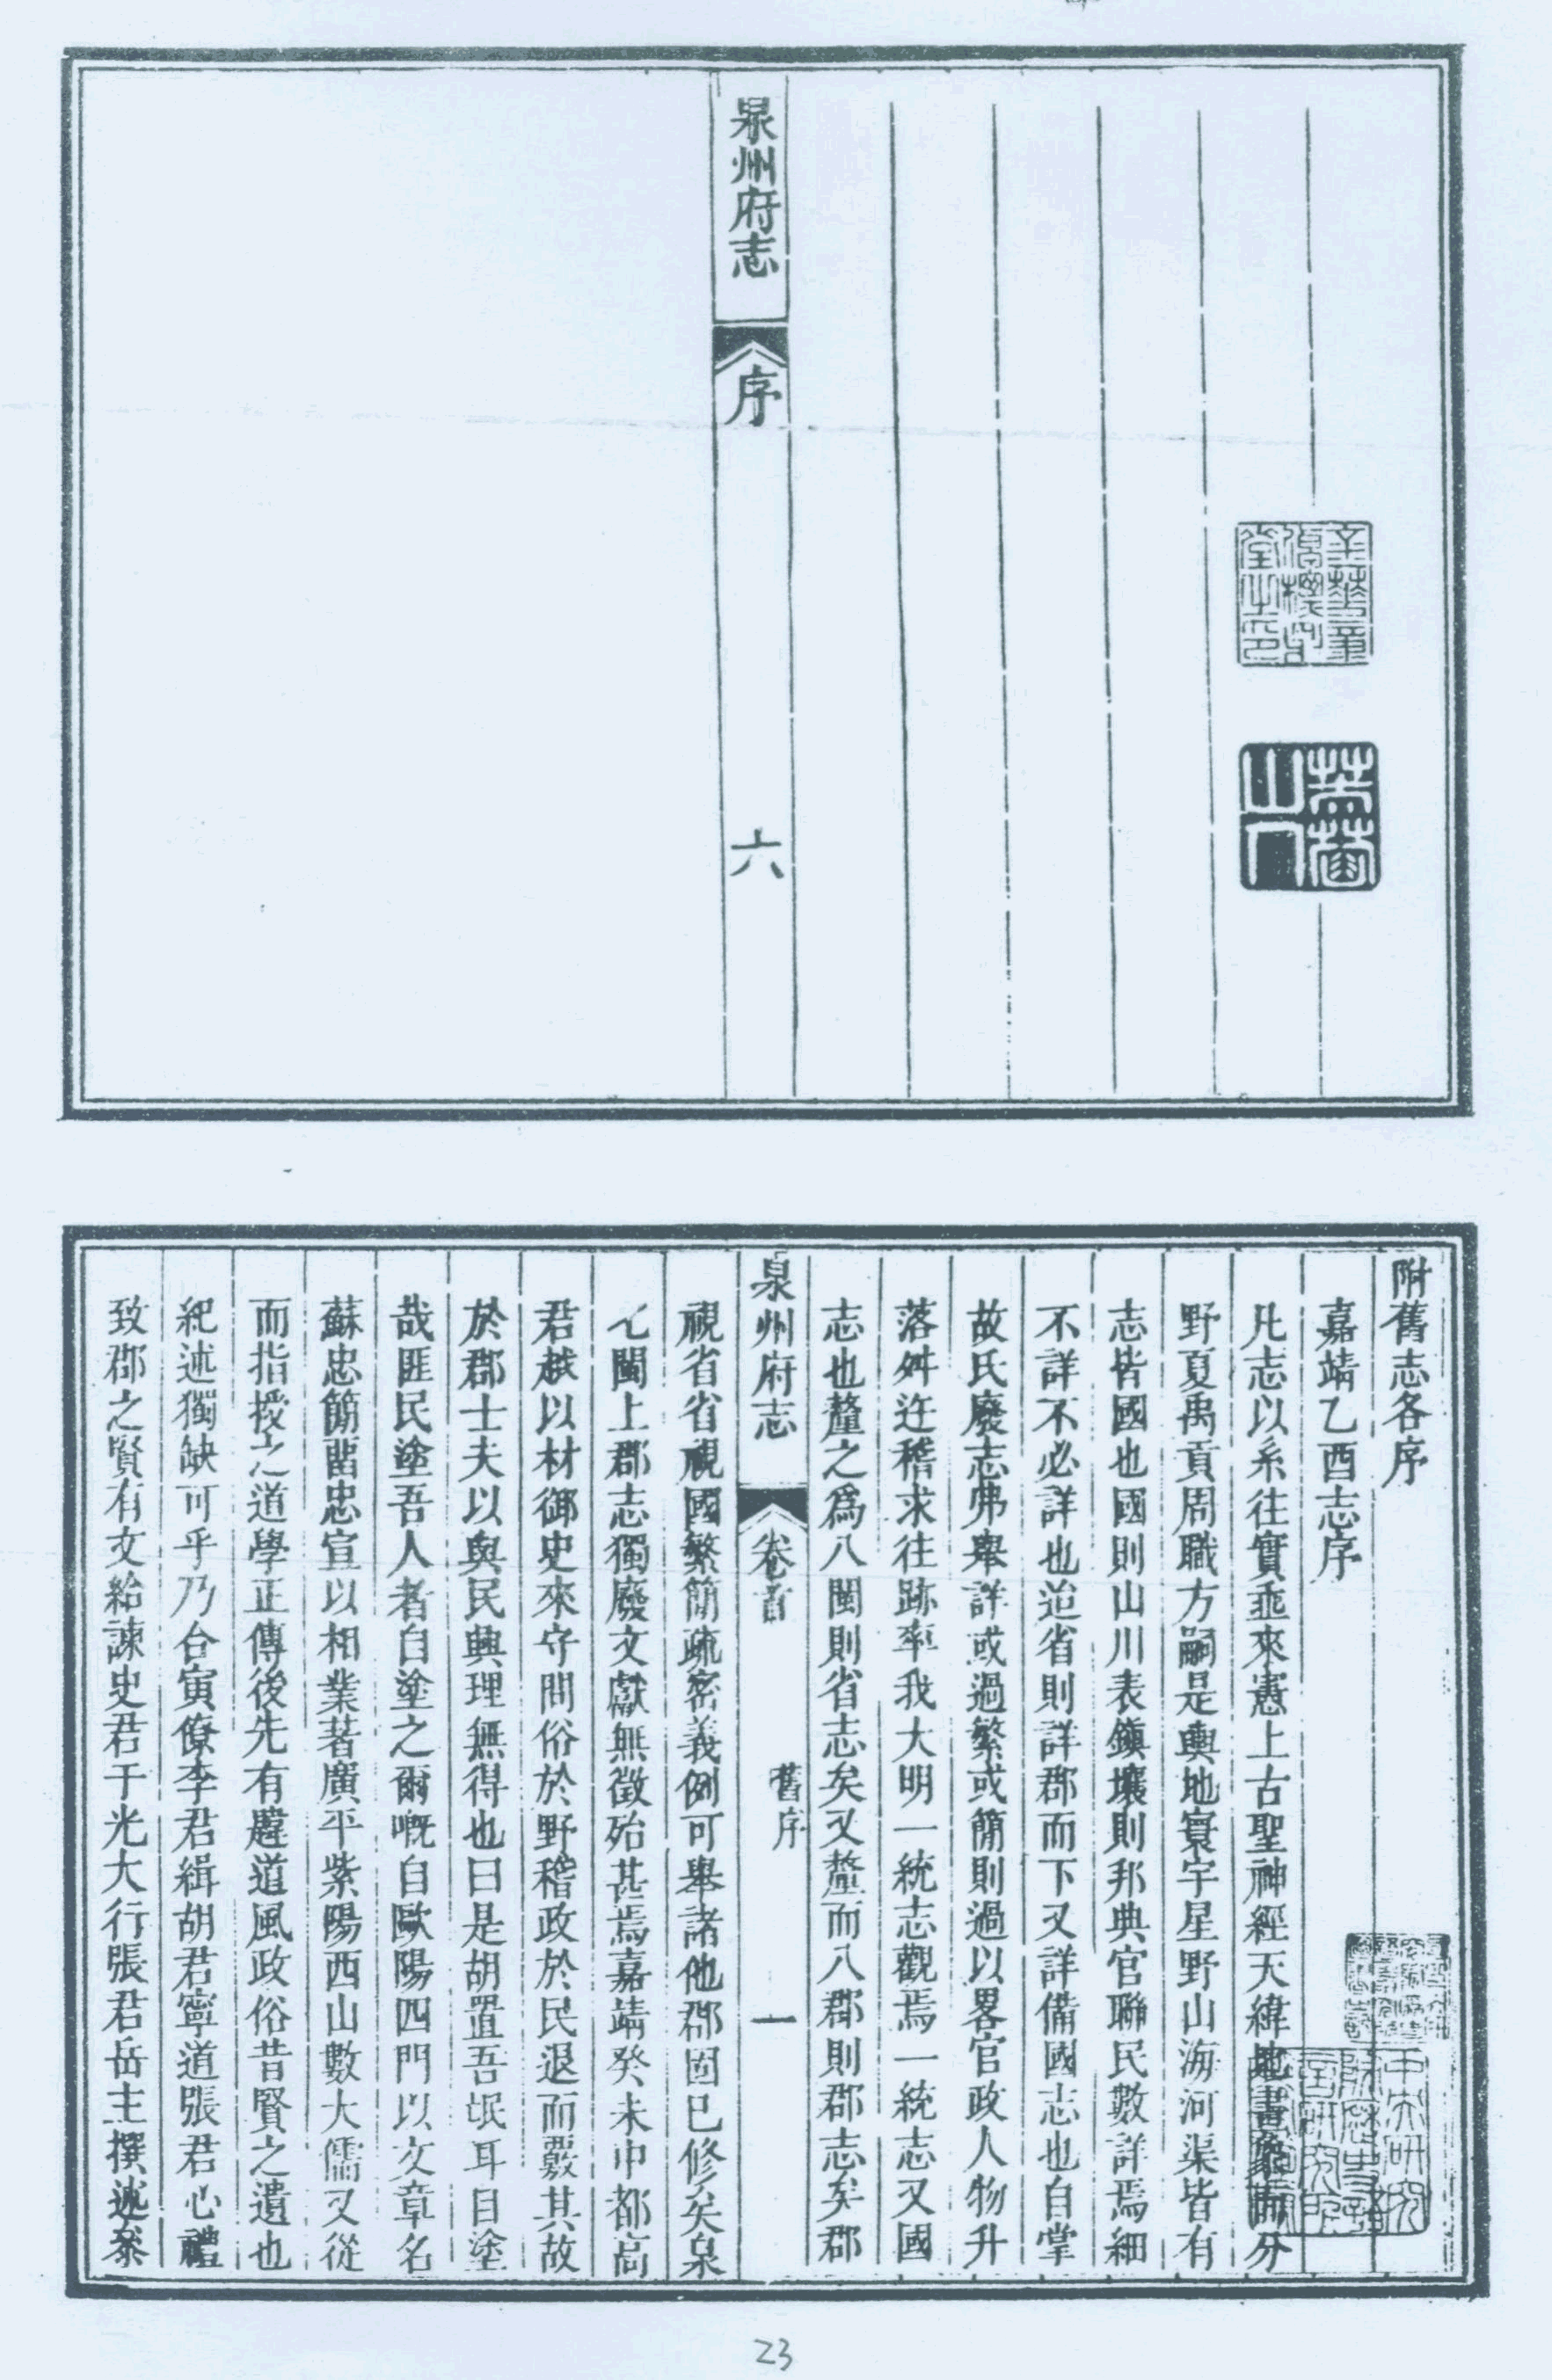 泉州府志
序
六
山人
附舊志各序
嘉靖乙酉志序
凡志以系往實垂來憲上古聖神經天緯地書象而分
野夏禹貢周職方嗣是輿地寰宇星野山海河渠皆有
志皆國也國則山川表鎮壤則邦典官聯民數詳焉細
不詳不必詳也迨省則詳郡而下又詳備國志也自掌
故氏廢志弗舉詳或過繁或簡則過以畧官政人物升
落舛迕稽求往跡率我大明一統志觀焉一統志又國
志也釐之爲八閩則省志矣又釐而八郡則郡志矣郡
泉州府志
卷首
舊序
一
視省省視國繁簡疏密義例可舉諸他郡固已修矣泉
乀閩上郡志獨廢文獻無徵殆甚焉嘉靖癸未中都高
君越以材御史來守問俗於野稽政於民退而覈其故
於郡士夫以與民興理無得也曰是胡置吾氓耳目塗
哉匪民塗吾人者自塗之爾嘅自歐陽四門以文章名
蘇忠簡留忠宣以相業著廣平紫陽西山數大儒又從
而指授之道學正傳後先有蹤道風政俗昔賢之遺也
紀述獨缺可乎乃合寅僚李君緝胡君寧道張君心禮
致郡之賢有文給諫史君于光大行張君岳主撰述叅
23